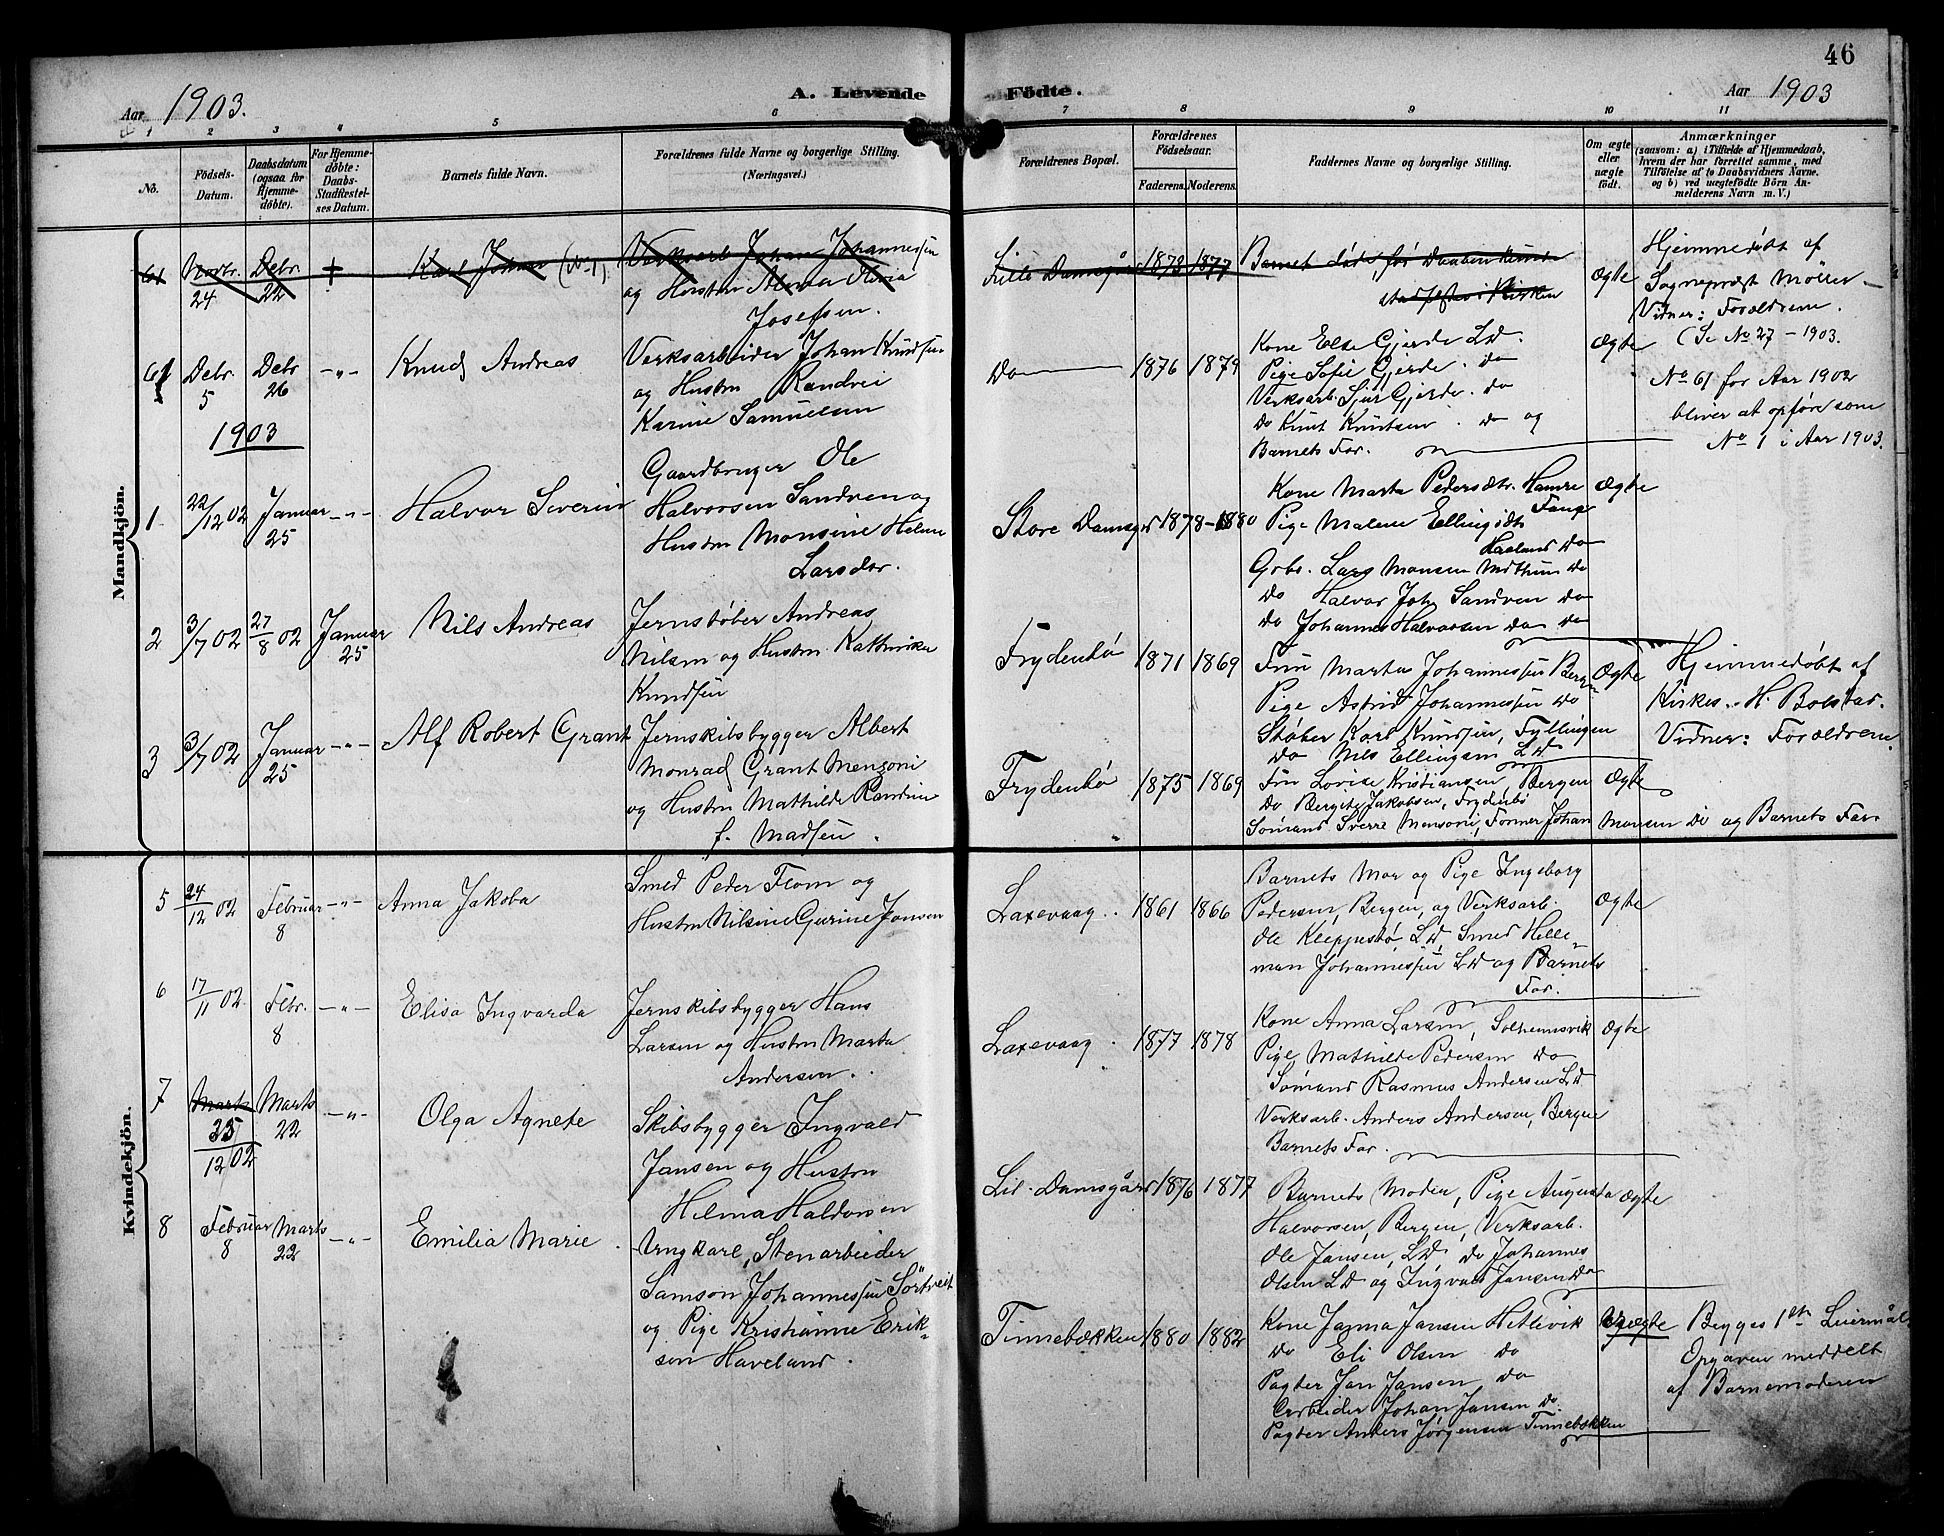 46
Aar 1903.
A. Levende Födte.
Aar 1903
1 2 3 4 5 6 7 8 9 10 11
No.
Födsels-Datum.
Daabsdatum (ogsaa for Hjemme-döbte).
For Hjemme-döbte: Daabs-Stadfæstel-ses Datum.
Barnets fulde Navn.
Forældrenes fulde Navne og borgerlige Stilling.
(Næringsvei.)
Forældrenes Bopæl.
Forældrenes Födselsaar.
Faderens. Moderens.
Faddernes Navne og borgerlige Stilling.
Om ægte eller uægte födt.
Anmærkninger
(saasom: a) i Tilfælde af Hjemmedaab,
hvem der har forrettet samme, med
Tilföielse af to Daabsvidners Navne.
og b) ved uægtefödte Börn An-
melderens Navn m. V.)
Mandkjön.
61 Novbr. 24 Debr. 22 Karl Johan (No 1)
Verksarb Johan Johannessen
og Hustru Olivia
Josefsen.
Lille Damsgård 1873 1877
Barnet döde för Daaben kunde
stadfestes i Kirken
Ægte
Hjemmedöbt af
Sogneprest Möller
Vidner: Forældrene.
(Se No 27 - 1903.
61 Debr. 5 Debr 26 -"- Knud Andreas
Verksarbeider Johan Knudsen
og Hustru Randvei
Karine Samuelsen
Do 1876 1879
Kone Else Gjerde Ld.
Pige Sofie Gjerde. do
Verksarb. Sjur Gjerde. do
do Knut Knutsen. do og
Barnets Far.
Ægte
No 61 for Aar 1902
bliver at opföre som
No 1 i Aar 1903.
1903
1 22/12 02 Januar 25 -"- Halvor Severin
Gaardbruger Ole
Halvorsen Sandven og
Hustru Monsine Helene
Larsdtr.
Store Damsgrd 1878 - 1880
Kone Marta Pedersdtr. Hamre
Pige Malene Ellingsdtr
Haaland do
Gbr. Lars Monsen do
do Halvor Joh Sandven do
do Johannes Halvorsen do do
Ægte
2 3/7 02 27/8 02 Januar 25 Nils Andreas
Jernstöber Andreas
Nilsen og Hustru Kathinka
Knudsen
Frydenbö 1871 1869
Fru Marta Johannessen Bergen
Pige Astrid Johannessen do
Stöber Karl Knudsen, Fyllingen
do Nils Ellingsen Ld
Ægte
Hjemmedöbt af
Kirkes. H. Bolstad.
Vidner: Forældrene.
3 3/7 02 Januar 25 -"- Alf Robert Grant
Jernskibsbygger Albert
Monrad Grant Mensoni
og Hustru Mathilde Randine
f. Madsen.
Frydenbö 1875 1869
Fru Lovise Kristiansen Bergen
do Bergete Jakobsen, Frydenbö
Sömand Sverre Mensoni, Former Johan Monsen do og Barnets Far.
Ægte
Kvindekjön.
5 24/12 02 Februar 8 -"- Anna Jakoba
Smed Peder Flom og
Hustru Nilsine Gurine Jansen
Laxevaag. 1861 1866
Barnets Mor og Pige Ingeborg
Pedersen, Bergen, og Verksarb.
Ole Kleppestö, Ld, Smed Helle-
man Johannessen Ld og Barnets
Far.
Ægte
6 17/11 02 Febr. 8 -"- Elisa Ingvarda
Jernskibsbygger Hans
Larsen og Hustru Marta
Andersen.
Laxevaag. 1877 1878
Kone Anna Larsen, Solheimsvik
Pige Mathilde Pedersen do
Sömand Rasmus Andersen Ld
Verksarb. Anders Andersen, Bergen
Barnets Far.
Ægte
7 Marts 25/12 02 Marts 22 -"- Olga Agnete
Skibsbygger Ingvald
Jansen og Hustru
Helma Haldorsen
Lil. Damsgård 1876 1877
Barnets Moder, Pige Augusta
Halvorsen, Bergen, Verksarb.
Ole Jansen, Ld do Johannes
Olsen Ld og Ingvald Jansen do
Ægte
8 Februar 8 Marts 22 -"- Emilia Marie.
Ungkarl, Stenarbeider
Samson Johannessen Sörtveit
og Pige Kristianne Erik-
sen Haveland.
Tinnebækken 1880 1882
Kone Janna Jansen Hetlevik
do Eli Olsen do
Pagter Jan Jansen do
Arbeider Johan Jansen do.
Pagter Anders Jörgensen Tinnebækken
Uægte
Begges 1ste Leiermål
Opgaven meddelt
af Barnemoderen